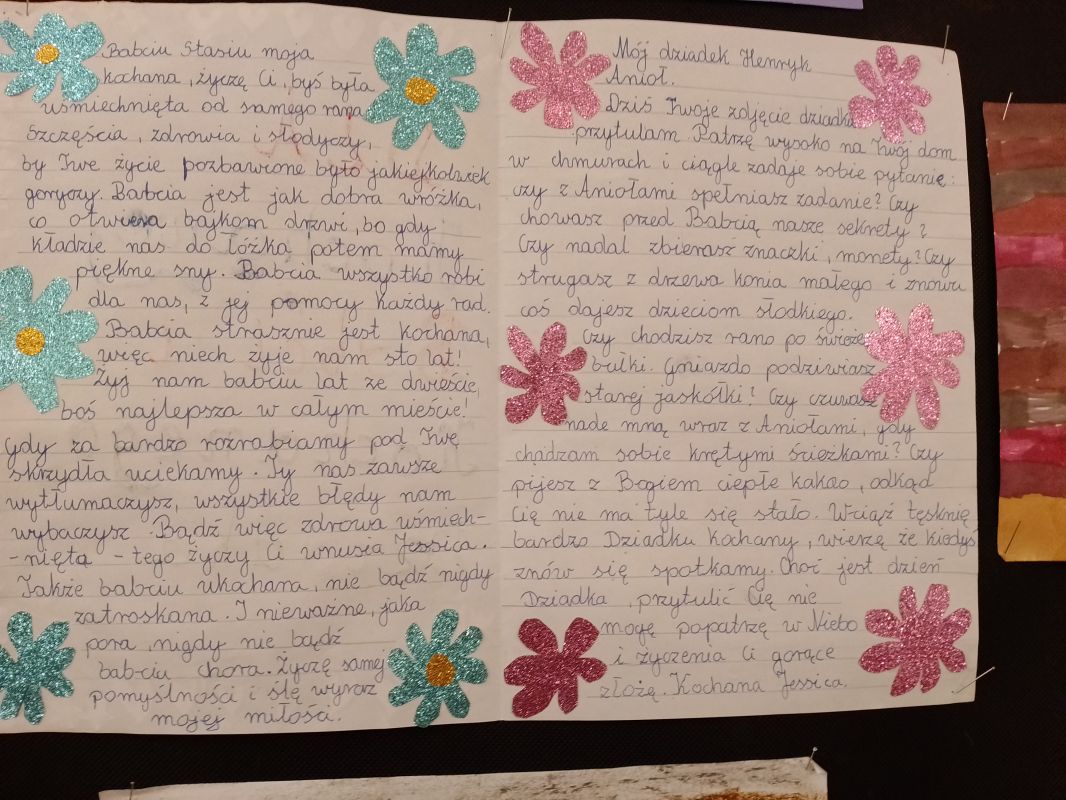 Babciu Stasiu moja
kochana, życzę Ci, byś była
uśmiechnięta od samego rana.
Szczęścia, zdrowia i słodyczy,
by Twe życie pozbawione było jakiejkolwiek
goryczy. Babcia jest jak dobra wróżka,
co otwiera bajkom drzwi, bo gdy
kładzie nas do łóżka potem mamy
piękne sny. Babcia wszystko robi
dla nas, z jej pomocy każdy rad.
Babcia strasznie jest kochana,
więc niech żyje nam sto lat!
Żyj nam babciu lat ze dwieście,
boś najlepsza w całym mieście!
Gdy za bardzo rozrabiamy pod Twe
skrzydła uciekamy. Ty nas zawsze
wytłumaczysz, wszystkie błędy nam
wybaczysz. Bądź więc zdrowa uśmiech-
-nięta - tego życzy Ci wnusia Jessica.
Także babciu ukochana, nie bądź nigdy
zatroskana. I nieważne, jaka
pora, nigdy nie bądź
babciu chora. Życzę samej
pomyślności i ślę wyraz
mojej miłości.
Mój dziadek Henryk
Anioł.
Dziś Twoje zdjęcie dziadku
przytulam. Patrzę wysoko na Twój dom
w chmurach i ciągle zadaje sobie pytanie:
czy z Aniołami spełniasz zadanie? Czy
chowasz przed Babcią nasze sekrety?
Czy nadal zbierasz znaczki, monety? Czy
strugasz z drzewa konia małego i znowu
coś dajesz dzieciom słodkiego.
Czy chodzisz rano po świeże
bułki. Gniazdo podziwiasz
starej jaskółki? Czy czuwasz
nade mną wraz z Aniołami, gdy
chadzam sobie krętymi ścieżkami? Czy
pijesz z Bogiem ciepłe kakao, odkąd
Cię nie ma tyle się stało. Wciąż tęsknię
bardzo Dziadku Kochany, wierzę że kiedyś
znów się spotkamy. Choć jest dzień
Dziadka, przytulić Cię nie
mogę popatrzę w Niebo
i życzenia Ci gorące
złożę. Kochana Jessica.